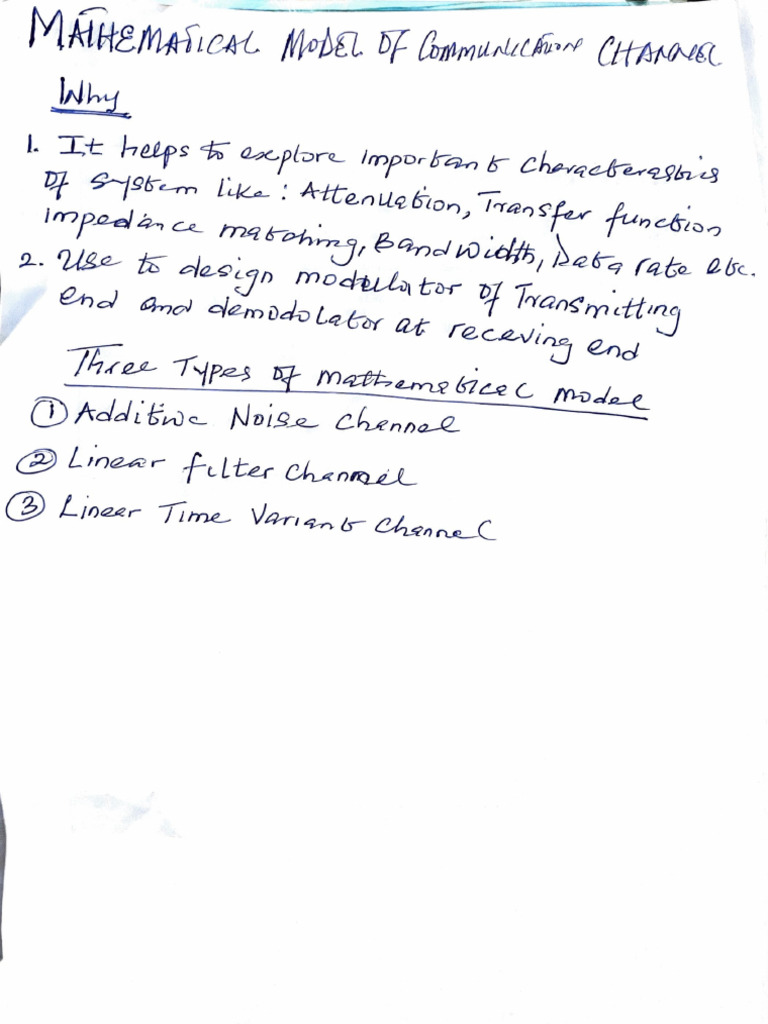 MATHEMATICAL MODEL OF COMMUNICATION CHANNEL
Why
1. It helps to explore important characterastics
of system like : Attenuation, Transfer function
impedance matching, Bandwidth, Data rate etc.
2. Use to design modulator of Transmitting
end and demodolator at receving end
Three Types of mathematical model
① Additive Noise channel
② Linear filter channel
③ Linear Time Variant channel